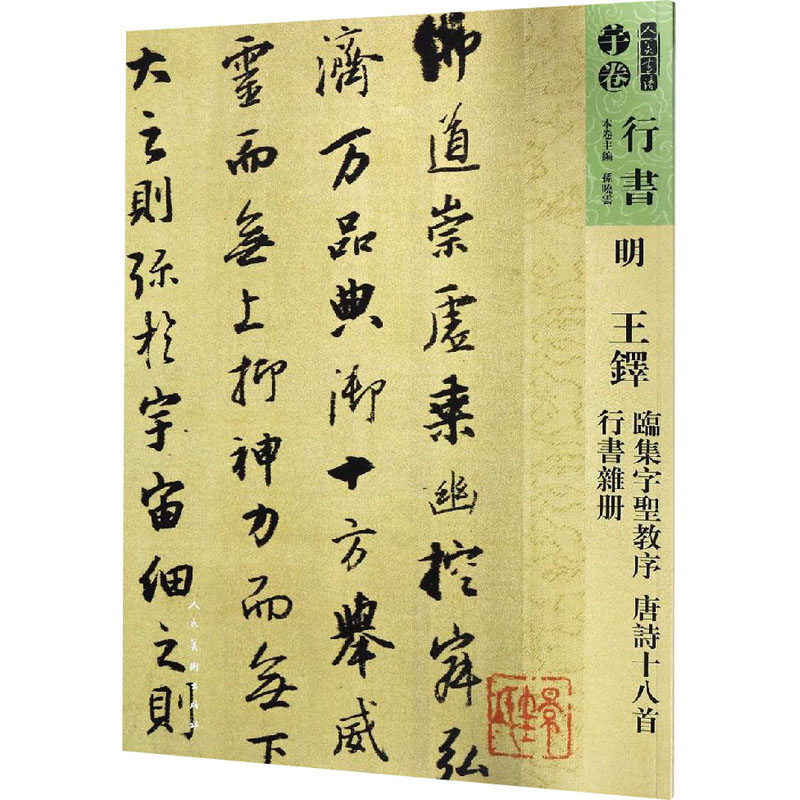 人美書譜
子卷
行書
本卷主編 孫曉雲
明
王鐸
臨集字聖教序 唐詩十八首
行書雜册
佛道崇虛乘幽控寂弘
濟万品典御十方舉威
靈而無上抑神力而無下
大之則彌於宇宙細之則
人民美術出版社